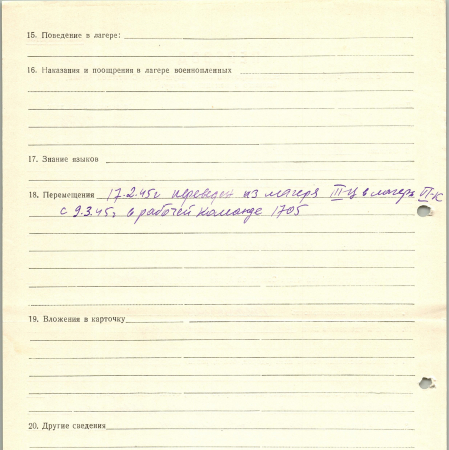 15. Поведение в лагере:
16. Наказания и поощрения в лагере военнопленных
17. Знание языков
18. Перемещения 17.2.45г переведен из лагеря III-Ц в лагерь II-К
с 9.3.45г в рабочей команде 1705
19. Вложения в карточку
20. Другие сведения